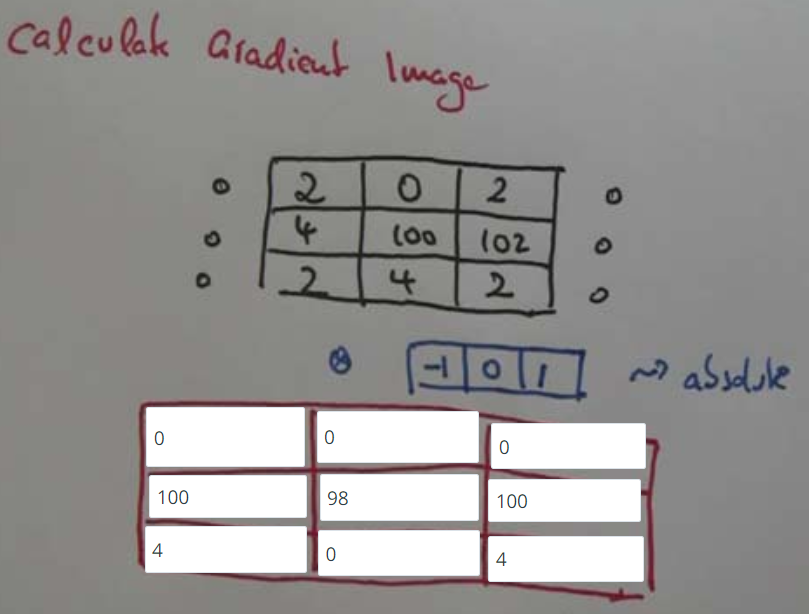 Calculate Gradient Image
0 2 0 2 0
0 4 100 102 0
0 2 4 2 0
⊗ -1 0 1 ~> absolute
0 0 0
100 98 100
4 0 4